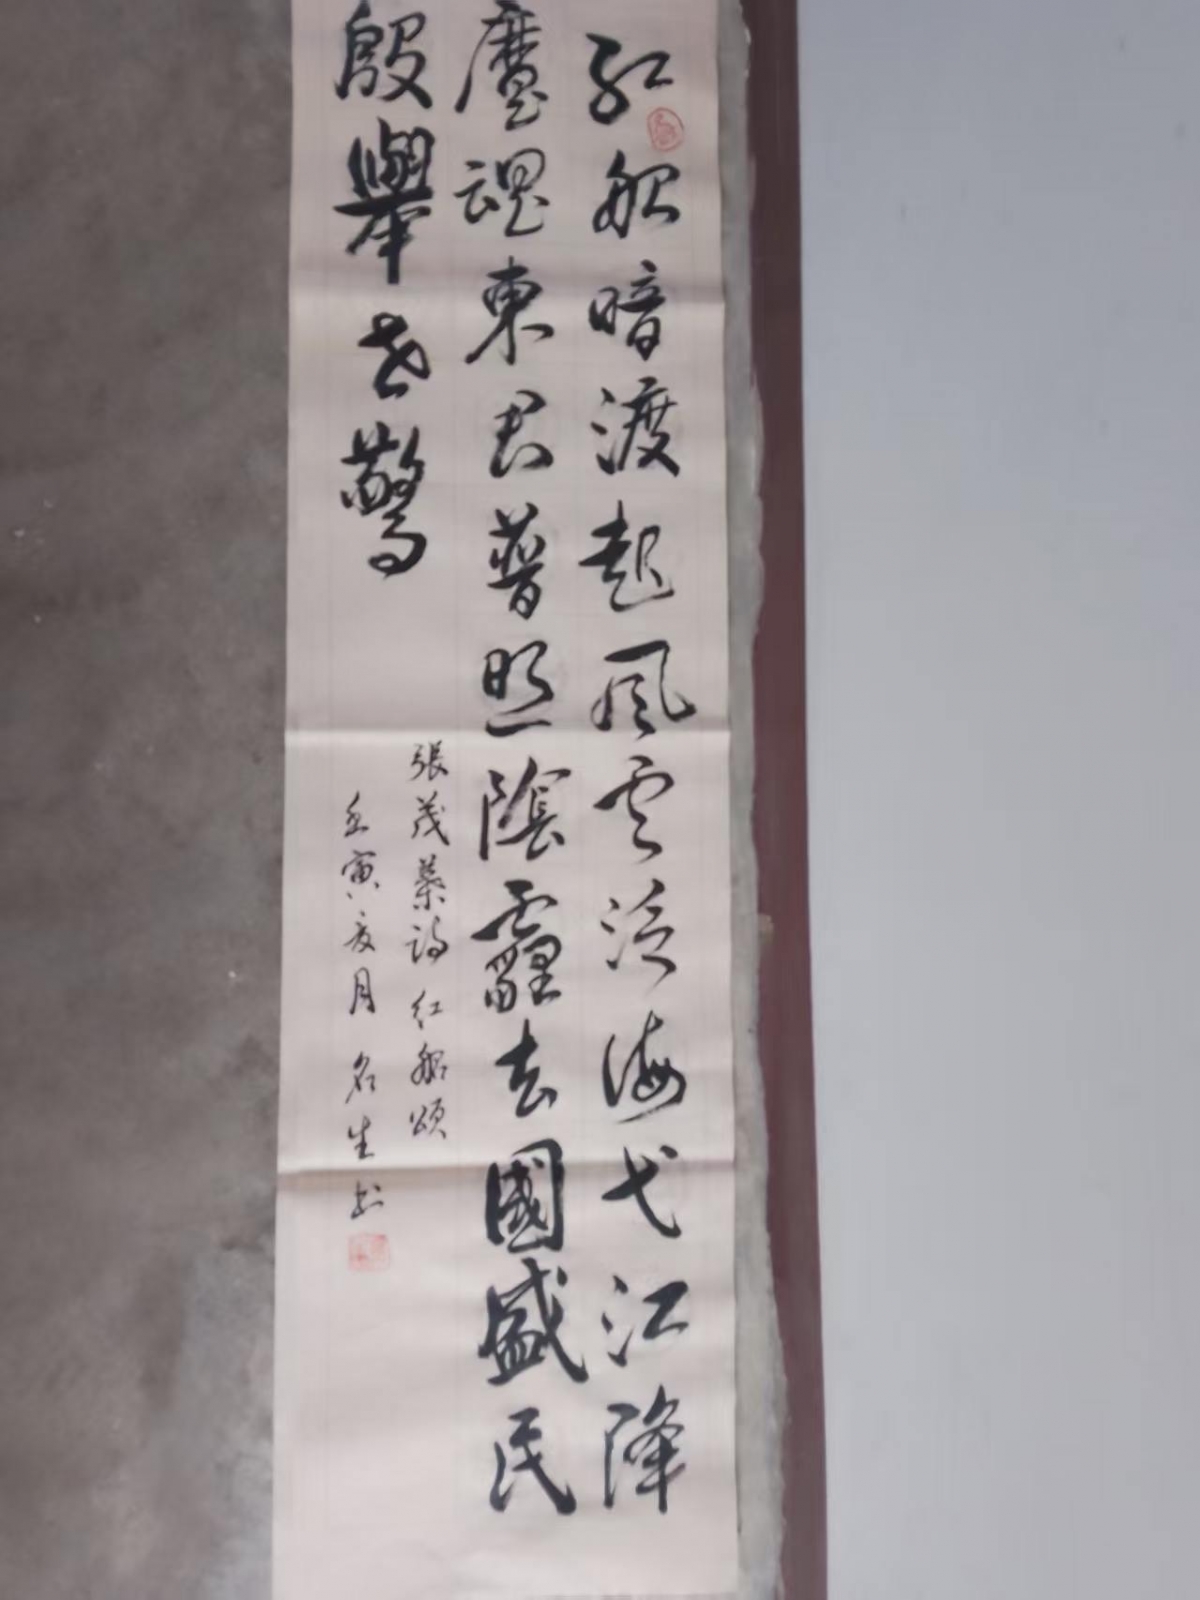 紅船暗渡起風雲泛海弋江降
魔魂東君普照陰霾去國盛民
殷舉世驚
張茂榮詩紅船頌
壬寅亥月名生书